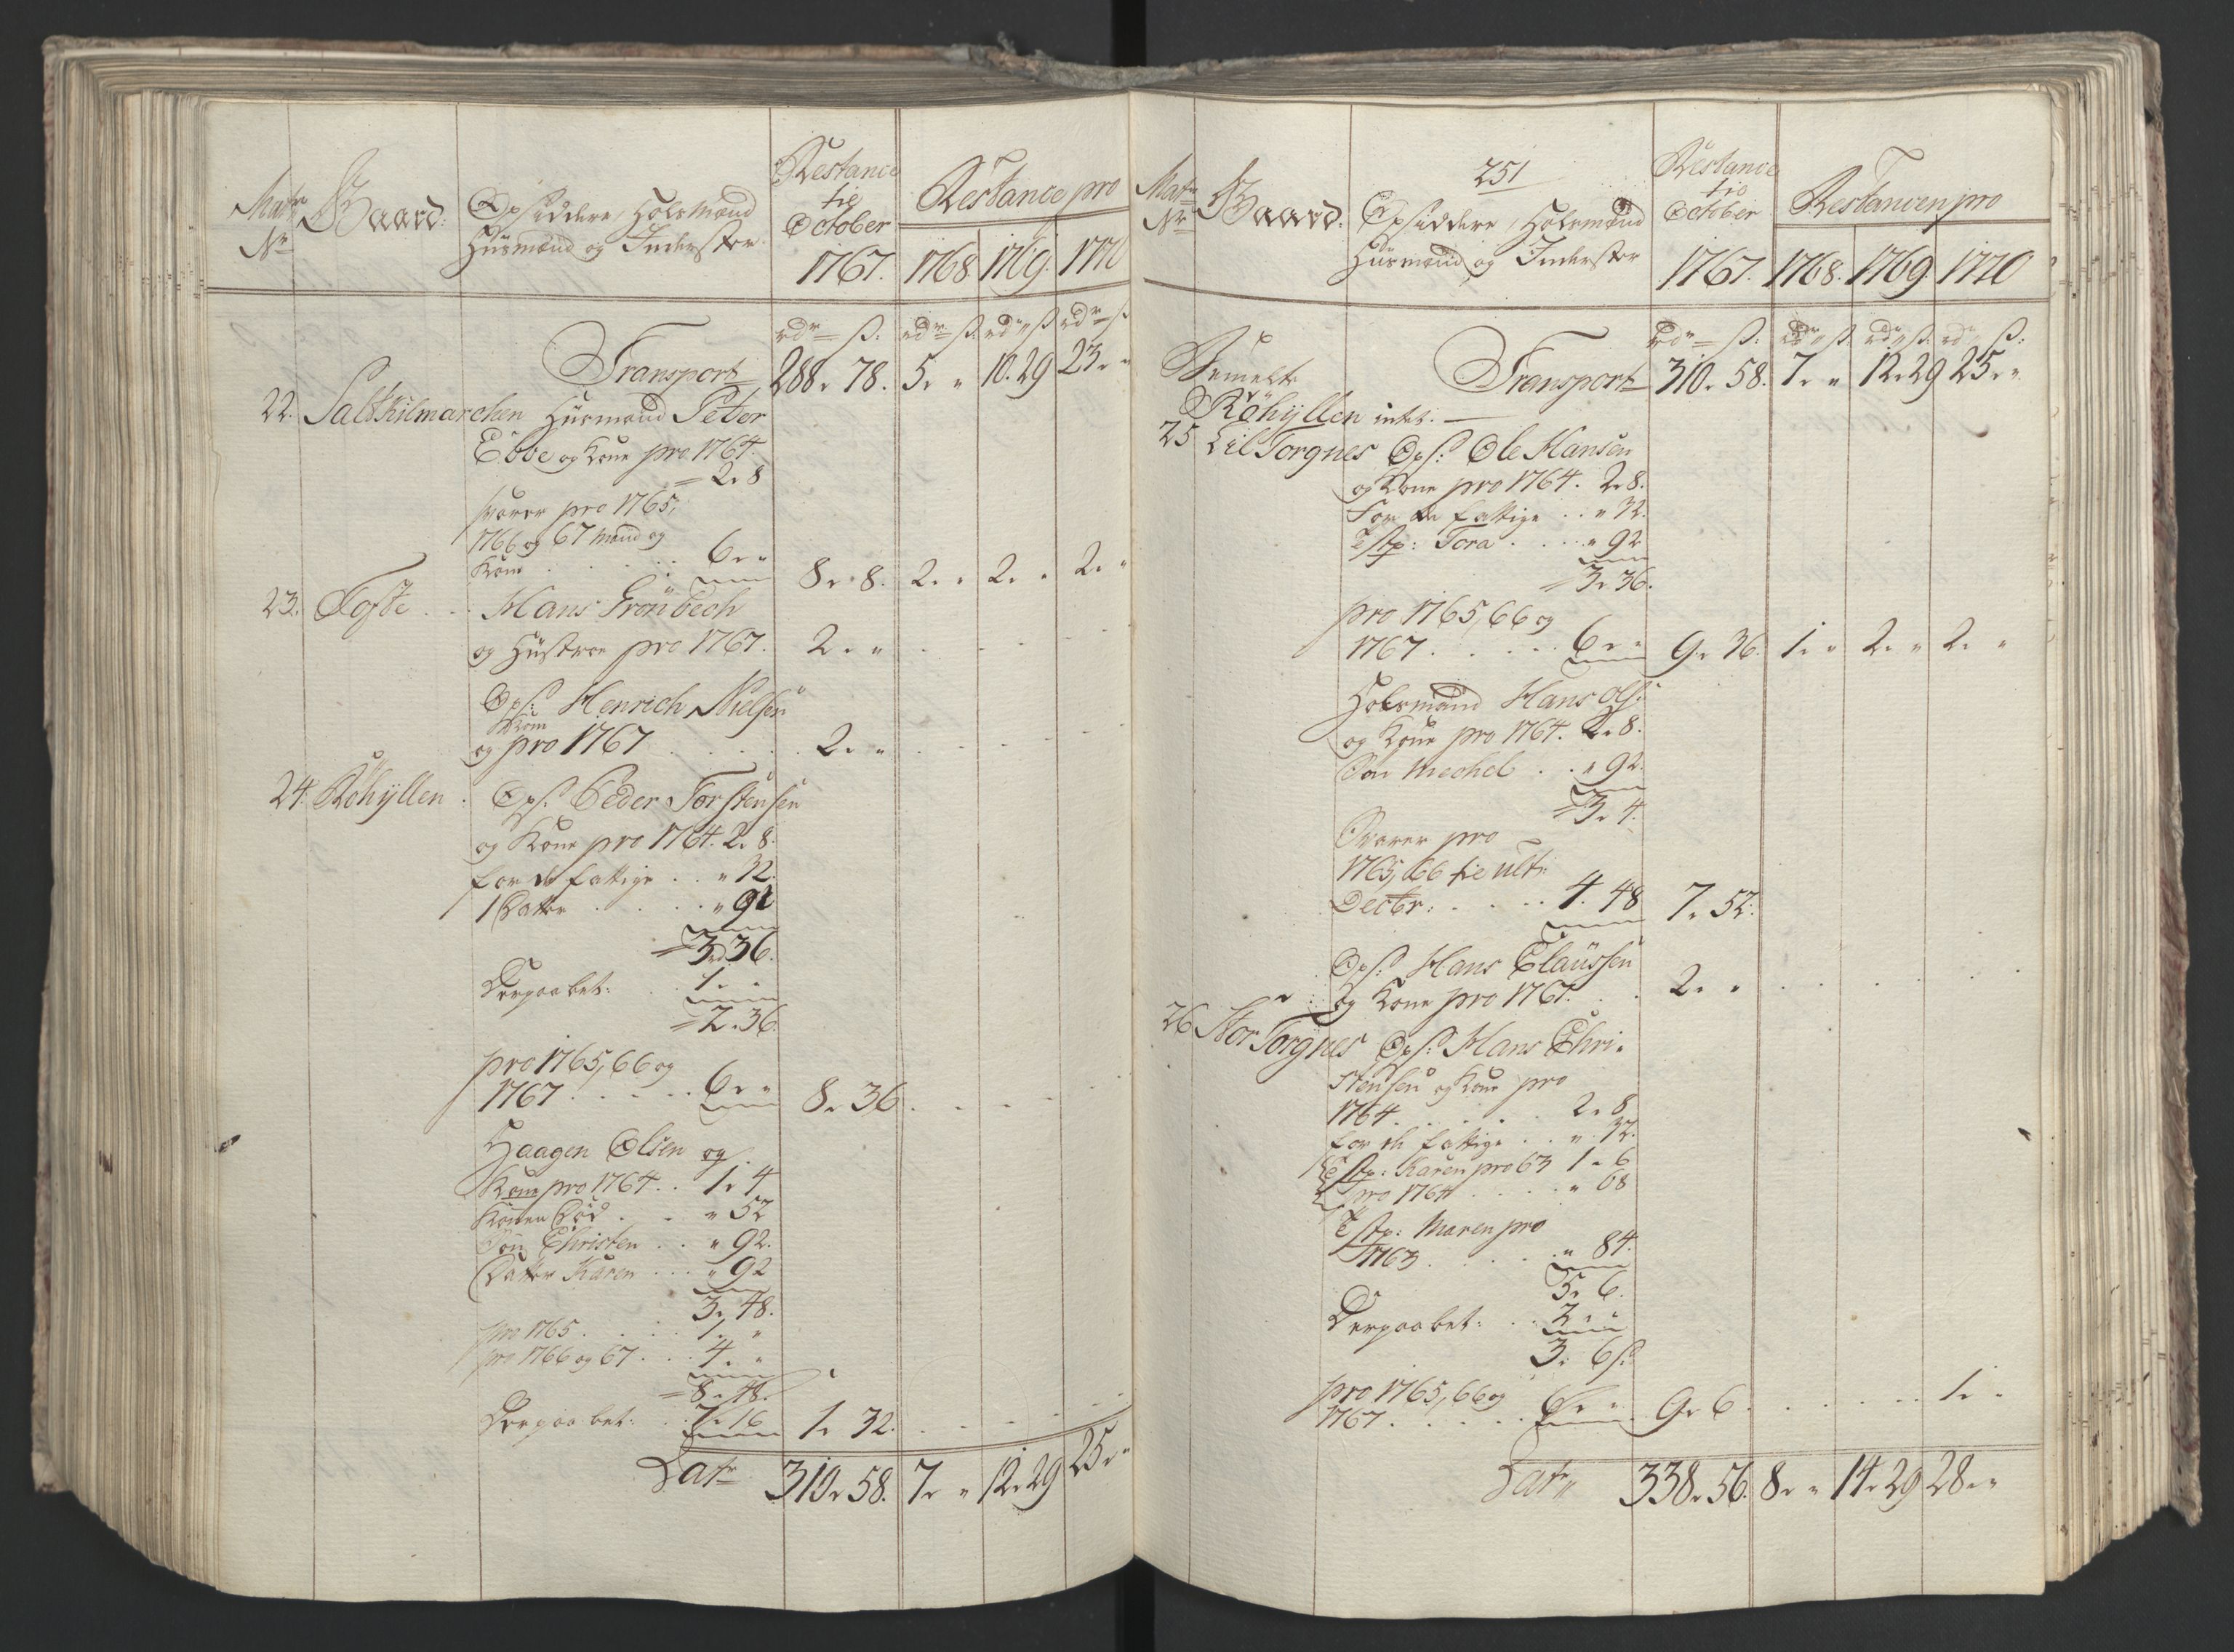 Matr Gaard: Opsiddere, Holsmænd Restance Restance pro
Nr Huusmænd og Inderster til October
1767. 1768. 1769. 1770
rdr ß. rdr ß. rdr ß rdr ß
Transport 288. 78. 5. " 10. 29 23. "
22. Salthilmarchen Huusmand Peter
Ebbe og Kone pro 1764.
= 2. 8
svarer pro 1765,
1766 og 67 Mand og
Kone . . . . . 6. " 8. 8. 2. " 2. " 2. "
23. Tofte . . Hans Grönbech
og Hustroe pro 1767. 2. "
Ops: Henrich Nielsen
Kone
og pro 1767 . . . . . 2. "
24. Röhÿllen . Ops: Peder Torstensen
og Kone pro 1764. 2. 8.
for de fattige . . " 32.
1 Datter . . . . " 92
= 3. 36.
Derpaa bet: . . 1. "
= 2. 36
pro 1765, 66 og
1767 . . . . . 6. " 8. 36 . . . .
Haagen Olsen og
Kone pro 1764 . . 1. 4
Konen Död . . " 52
Sön Christen . . " 92.
Datter Karen . . . " 92
3. 48.
pro 1765 . . . . 1. "
pro 1766 og 67 . . . 4. "
= 8. 48.
Derpaa bet: . . 7. 16 1. 32.
Latr 310. 58. 7. " 12. 29 25. "
251
Matr Gaard: Opsiddere, Holsmænd Restance Restancen pro
Nr Huusmænd og Inderster til October
1767. 1768. 1769. 1770
rdr ß: rdr ß. rdr ß. rdr ß:
Transport 310. 58. 7. " 12. 29 25. "
Bemelte
Röhÿllen intet. —
25 Lil Torgnes Ops: Ole Hansen
og Kone pro 1764. 2. 8.
for de fattige . . " 32.
Tstp: Tora . . . . " 92
= 3. 36.
pro 1765, 66 og
1767 . . . . . 6. " 9. 36. 1. " 2. " 2. "
Holsmand Hans Ols:
og Kone pro 1764. 2. 8.
Sön Mechel . . " 92.
= 3. 4.
Svarer pro
1765, 66 til ult:
Decbr: . . . . . 4. 48 7. 52.
Ops: Hans Claussen
og Kone pro 1767. . . 2. "
26 Stor Torgnes Ops: Hans Chri-
stensen og Kone pro
1764 . . . . . . 2. 8
for de fattige . . " 32.
Tstp: Karen pro 63 1. 6
pro 1764 . . . . " 68
Tstp: Maren pro
1763 . . . . . " 84.
5. 6.
Derpaa bet: . . 2. "
3. 6 ß.
pro 1765, 66 og
1767 . . . . . . 6. " 9. 6 . . . . . . . 1. "
Latr 338. 56. 8. " 14. 29 28. "